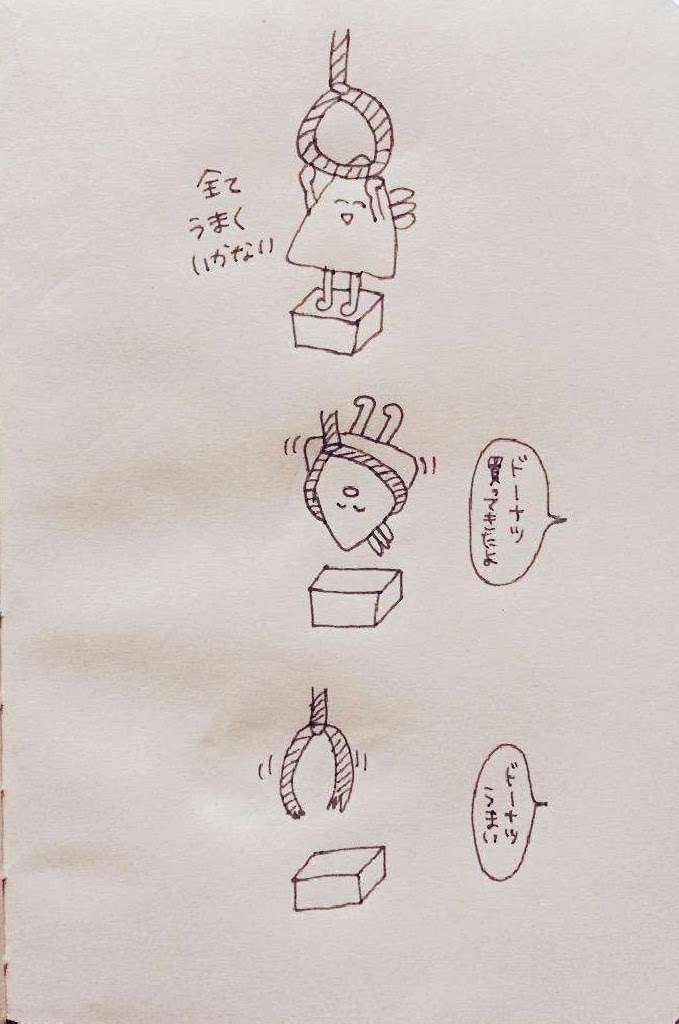 全て
うまく
いかない
ドーナツ
買ってきたよ
ドーナツ
うまい